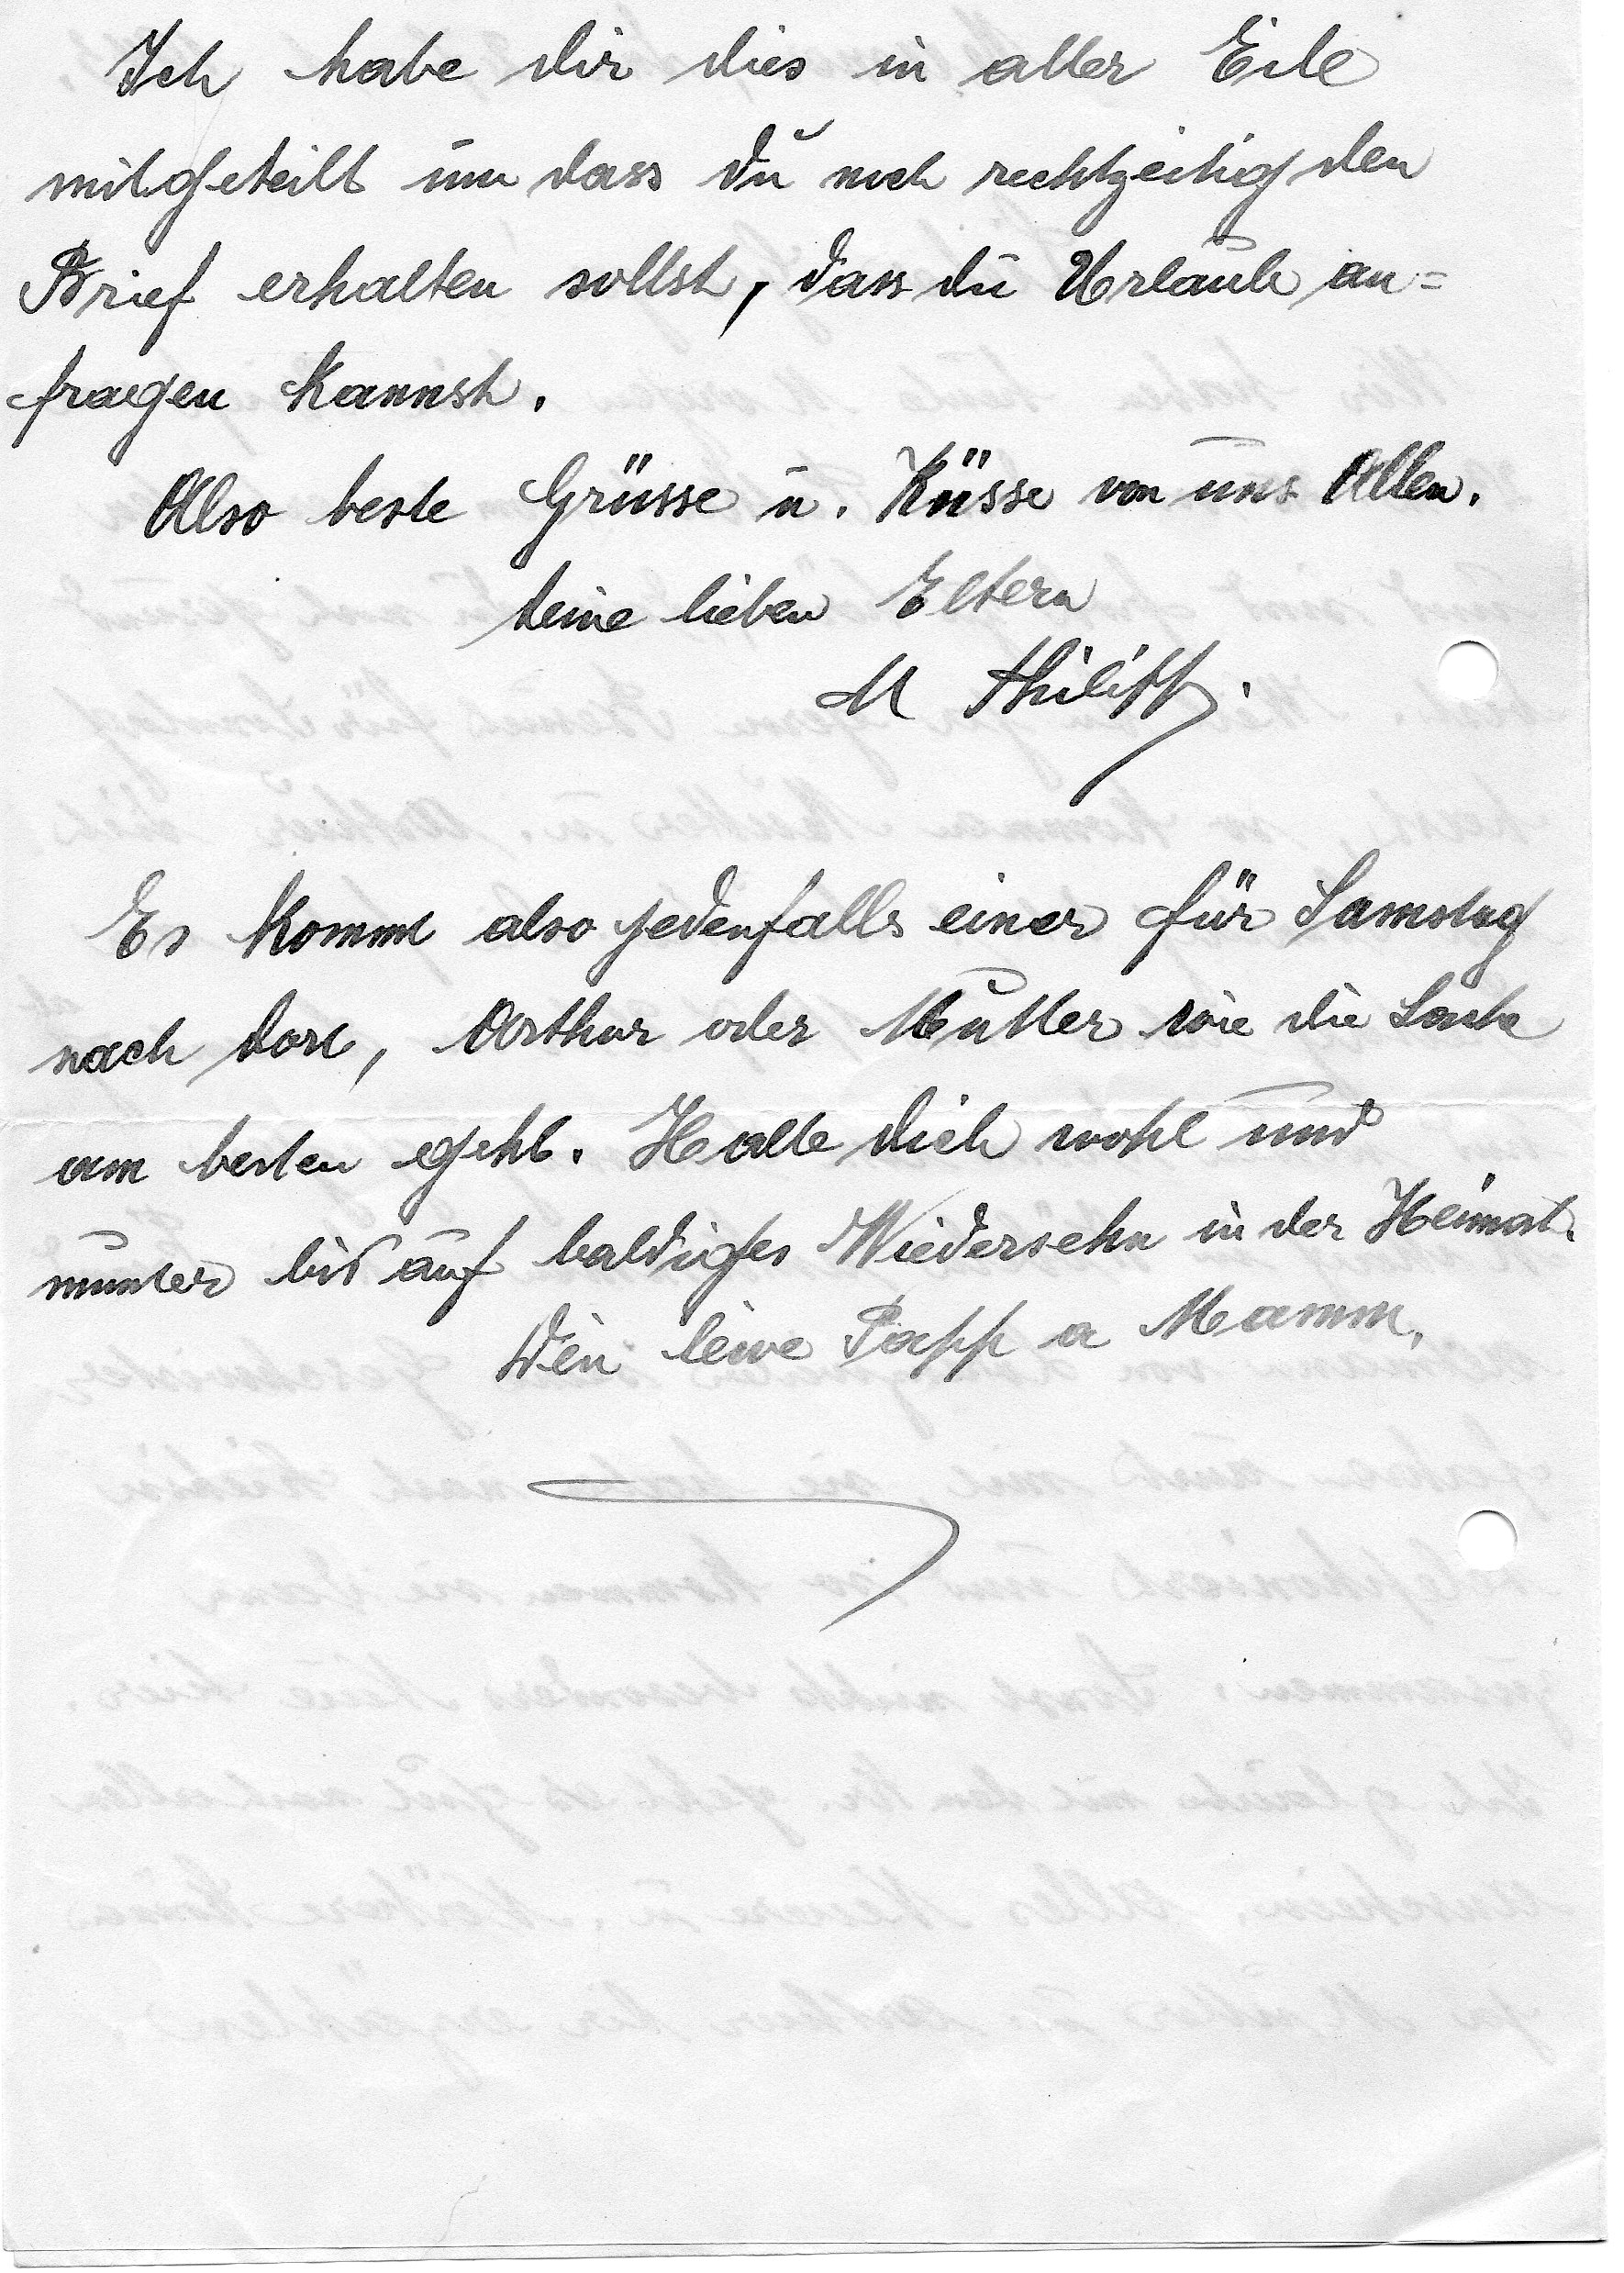 Ich habe dir dies in aller Eile
mitgeteilt um dass du noch rechtzeitig den
Brief erhalten sollst, dass du Urlaub an=
fragen kannst.
Also beste Grüsse u. Küsse von uns Allen.
deine lieben Eltern
M Philipp.
Es kommt also jedenfalls einer für Samstag
nach dort, Arthur oder Mutter wie die Sache
am besten geht. Halte dich wohl und
munter bis auf baldiges Wiedersehn in der Heimat.
Dein leiwe Papp a Mamm.